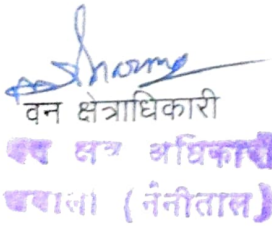 वन क्षेत्राधिकारी
वन क्षेत्र अधिकारी
(नैनीताल)